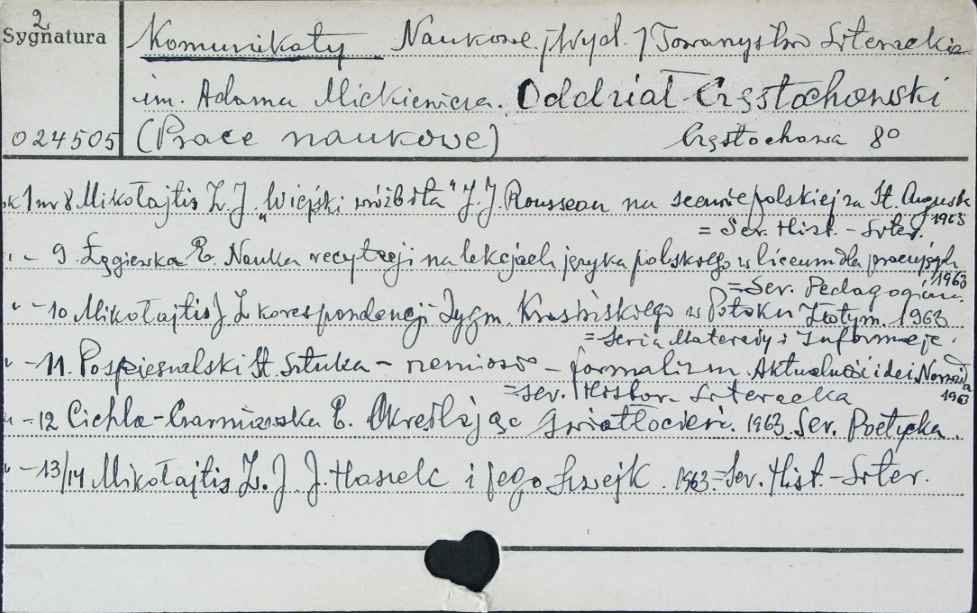 2
Sygnatura
Komunikaty Naukowe. /Wyd./ Towarzystwo Literackie
im. Adama Mickiewicza. Oddział Częstochowski
024505 (Prace naukowe) Częstochowa 8°
1 nr 8 Mikołajtis Z. J. "Wiejski wróżbita" J. J. Rousseau na scenie polskiej za St. Augusta
1963
= Ser. Hist. - Liter.
" - 9 Łęgiewska E. Nauka recytacji na lekcjach języka polskiego w liceum dla pracujących
1963
= Ser. Pedagogiczn.
" - 10 Mikołajtis J. Z korespondencji Zygm. Krasińskiego w Potoku Złotym. 1963
= Seria Materiały i Informacje.
" - 11. Pospieszalski St. Sztuka - rzemiosło - formalizm. Aktualność idei Norwida
1963
= Ser. Histor. Literacka
" - 12 Cichla-Czarniawska E. Określając światłocieni. 1963. Ser. Poetycka.
" - 13/14 Mikołajtis Z. J. J. Hasek i jego Szwejk. 1963. = Ser. Hist. - Liter.